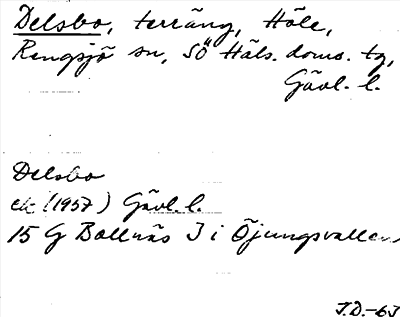 Delsbo, terräng, Höle,
Rengsjö sn, SÖ Häls. doms. tg,
Gävl. l.
Delsbo
ek (1957) Gävl. l.
15 G Bollnäs J i Öjungsvallen
J.D.-63